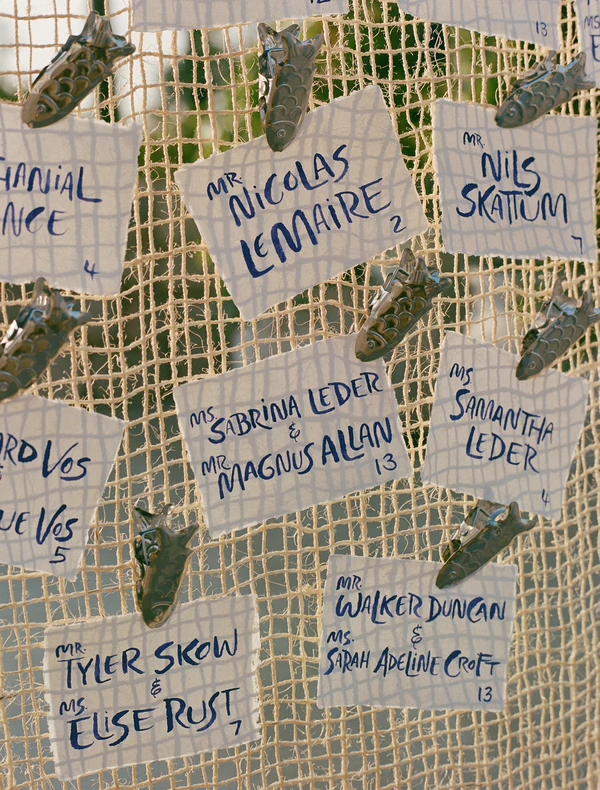 12
13
MS
4
MR.
NICOLAS
LEMAIRE
2
MR.
NILS
SKATTUM
7
MS. SABRINA LEDER
&
MR MAGNUS ALLAN
13
MS
SAMANTHA
LEDER
4
VOS
VOS
5
MR.
TYLER SKOW
&
MS.
ELISE RUST
7
MR.
WALKER DUNCAN
&
MS.
SARAH ADELINE CROFT
13